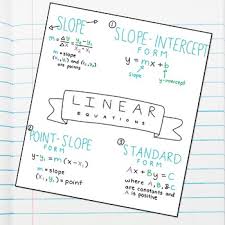 SLOPE
m = Δy/Δx = y₂-y₁/x₂-x₁
m = slope
(x₁, y₁) and (x₂, y₂)
are points
① SLOPE-INTERCEPT
FORM
y = mx + b
slope
y-intercept
LINEAR
EQUATIONS
② POINT-SLOPE
FORM
y-y₁ = m(x-x₁)
m = slope
(x₁, y₁) = point
③ STANDARD
FORM
Ax + By = C
where A, B, & C
are constants and
A is positive